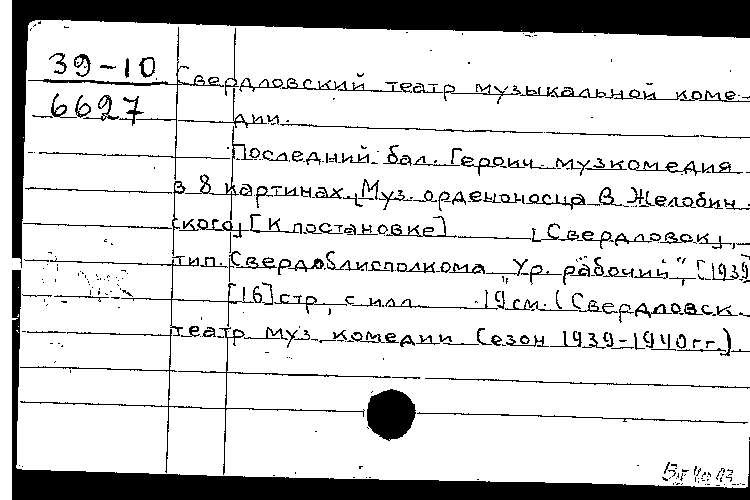 39-10
6627
Свердловский театр музыкальной коме-
дии.
Последний бал. Героич. музкомедия
в 8 картинах. [Муз. орденоносца В Желобин
ского] [К постановке] [Свердловск],
тип. Свердоблисполкома "Ур. рабочий", [1939]
[16] стр., с илл. 19 см. (Свердловск.
театр муз. комедии. Сезон 1939-1940 гг.).